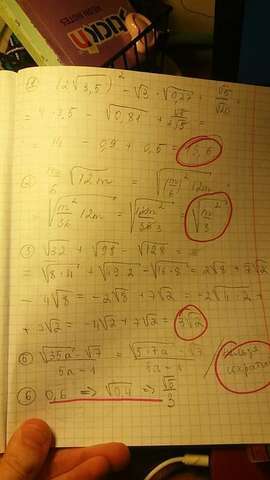 ① (2√3,5)² - √3 · √0,27 + √5/√20 =
= 4 · 3,5 - √0,81 + √5/2√5 =
= 14 - 0,9 + 0,5 = 13,6
② m/6 √12m = √(m/6)² 12m =
= √m²/36 12m = √12m³/36 3 √m³/3
③ √32 + √98 - √128 =
= √8·4 + √49·2 - √16·8 = 2√8 + 7√2
- 4√8 = -2√8 + 7√2 = -2√4·2 +
+ 7√2 = -4√2 + 7√2 = 3√2
⑤ √35a - √7 / 5a - 1 = √5·7a - √7 / 5a - 1
⑥ 0,6 => √0,4 => √5/3